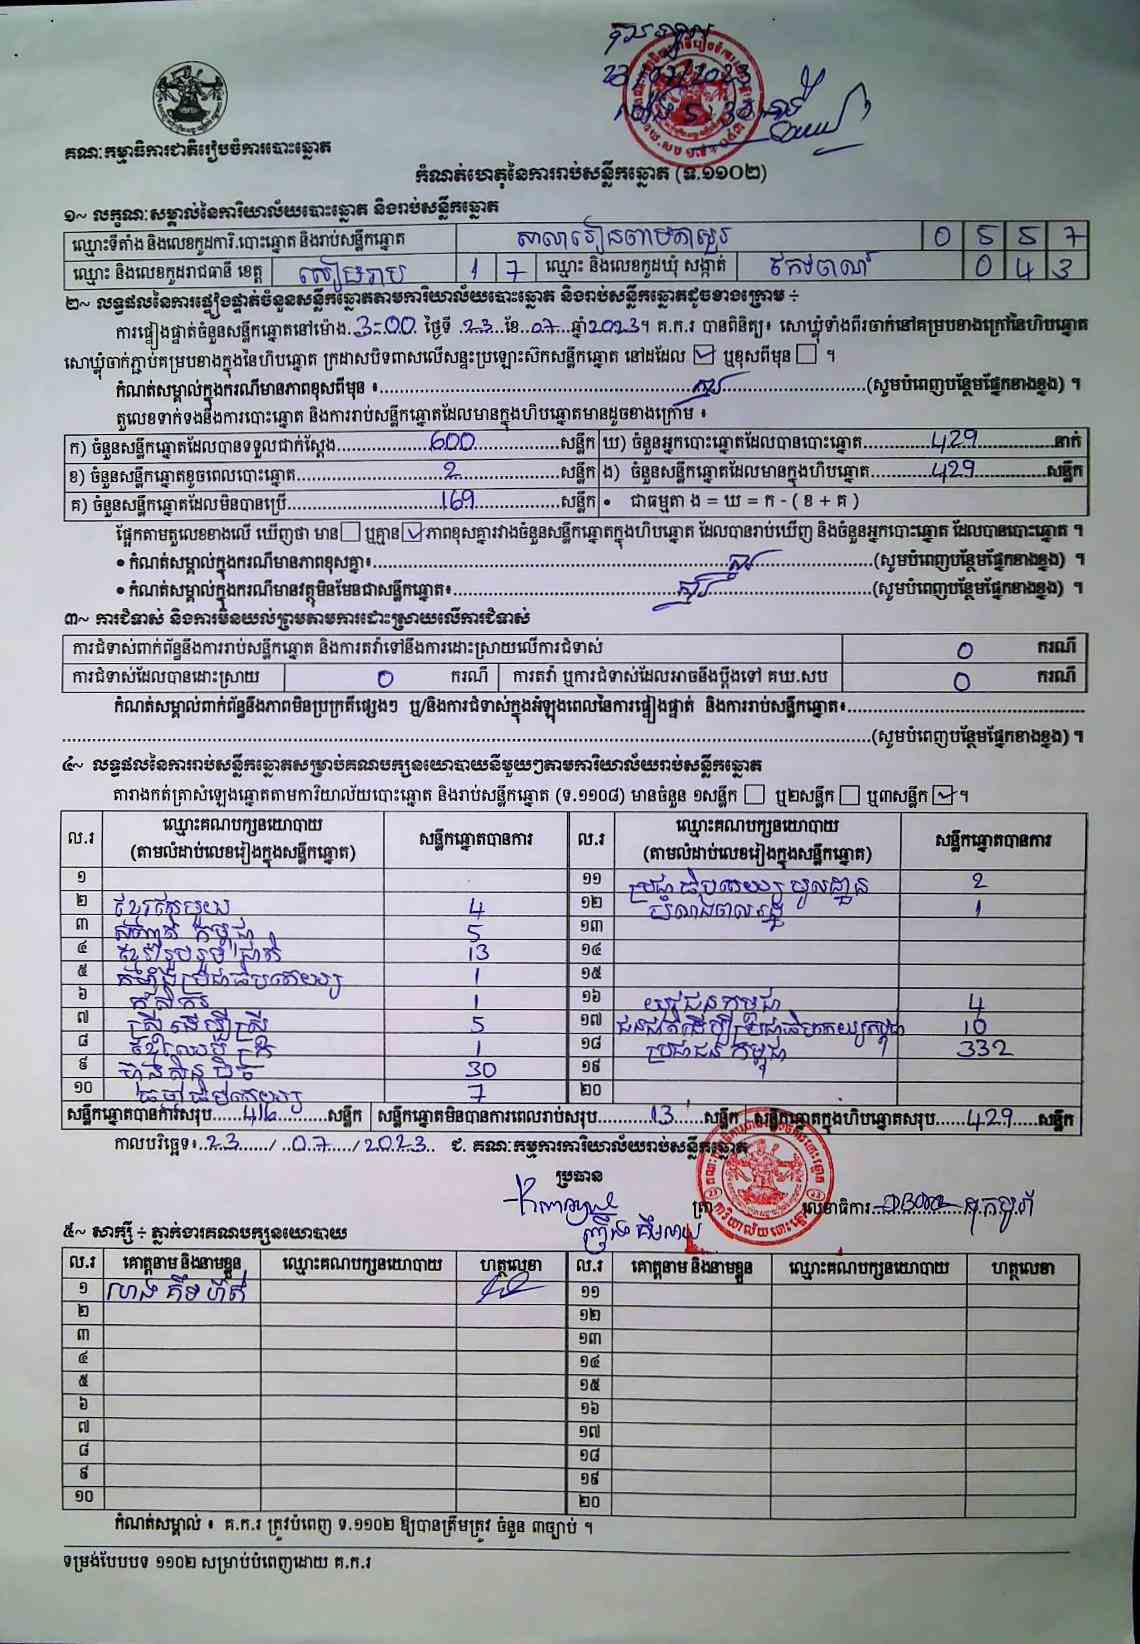 23/07/2023
គណៈកម្មាធិការជាតិរៀបចំការបោះឆ្នោត
កំណត់ហេតុនៃការរាប់សន្លឹកឆ្នោត (ទ.១១០២)
១~ លក្ខណៈសម្គាល់នៃការិយាល័យបោះឆ្នោត និងរាប់សន្លឹកឆ្នោត
ឈ្មោះទីតាំង និងលេខកូដការិ.បោះឆ្នោត និងរាប់សន្លឹកឆ្នោត សាលារៀន 0 5 5 7
ឈ្មោះ និងលេខកូដរាជធានី ខេត្ត សៀមរាប 1 7 ឈ្មោះ និងលេខកូដឃុំ សង្កាត់ កែវពណ៌ 0 4 3
២~ លទ្ធផលនៃការផ្ទៀងផ្ទាត់ចំនួនសន្លឹកឆ្នោតតាមការិយាល័យបោះឆ្នោត និងរាប់សន្លឹកឆ្នោតដូចខាងក្រោម ÷
ការផ្ទៀងផ្ទាត់ចំនួនសន្លឹកឆ្នោតនៅម៉ោង.3:00. ថ្ងៃទី .23..ខែ..07...ឆ្នាំ2023។ គ.ក.រ បានពិនិត្យ៖ សោឃ្លុំទាំងពីរចាក់នៅគម្របខាងក្រៅនៃហិបឆ្នោត
សោឃ្លុំចាក់ភ្ជាប់គម្របខាងក្នុងនៃហិបឆ្នោត ក្រដាសបិទពាសលើសន្ទះប្រឡោះស៊កសន្លឹកឆ្នោត នៅដដែល ☑ ឬខុសពីមុន ☐ ។
កំណត់សម្គាល់ក្នុងករណីមានភាពខុសពីមុន ៖ (សូមបំពេញបន្ថែមផ្នែកខាងខ្នង) ។
តួលេខទាក់ទងនឹងការបោះឆ្នោត និងការរាប់សន្លឹកឆ្នោតដែលមានក្នុងហិបឆ្នោតមានដូចខាងក្រោម ៖
ក) ចំនួនសន្លឹកឆ្នោតដែលបានទទួលជាក់ស្តែង 600 សន្លឹក ឃ) ចំនួនអ្នកបោះឆ្នោតដែលបានបោះឆ្នោត 429 នាក់
ខ) ចំនួនសន្លឹកឆ្នោតខូចពេលបោះឆ្នោត 2 សន្លឹក ង) ចំនួនសន្លឹកឆ្នោតដែលមានក្នុងហិបឆ្នោត 429 សន្លឹក
គ) ចំនួនសន្លឹកឆ្នោតដែលមិនបានប្រើ 169 សន្លឹក • ជាធម្មតា ង = ឃ = ក - ( ខ + គ )
ផ្អែកតាមតួលេខខាងលើ ឃើញថា មាន ☐ ឬគ្មាន ☑ ភាពខុសគ្នារវាងចំនួនសន្លឹកឆ្នោតក្នុងហិបឆ្នោត ដែលបានរាប់ឃើញ និងចំនួនអ្នកបោះឆ្នោត ដែលបានបោះឆ្នោត ។
• កំណត់សម្គាល់ក្នុងករណីមានភាពខុសគ្នា៖ (សូមបំពេញបន្ថែមផ្នែកខាងខ្នង) ។
• កំណត់សម្គាល់ក្នុងករណីមានវត្ថុមិនមែនជាសន្លឹកឆ្នោត៖ (សូមបំពេញបន្ថែមផ្នែកខាងខ្នង) ។
៣~ ការជំទាស់ និងការមិនយល់ព្រមតាមការដោះស្រាយលើការជំទាស់
ការជំទាស់ពាក់ព័ន្ធនឹងការរាប់សន្លឹកឆ្នោត និងការតវ៉ាទៅនឹងការដោះស្រាយលើការជំទាស់ 0 ករណី
ការជំទាស់ដែលបានដោះស្រាយ 0 ករណី ការតវ៉ា ឬការជំទាស់ដែលអាចនឹងប្តឹងទៅ គឃ.សប 0 ករណី
កំណត់សម្គាល់ពាក់ព័ន្ធនឹងភាពមិនប្រក្រតីផ្សេងៗ ឬ/និងការជំទាស់ក្នុងអំឡុងពេលនៃការផ្ទៀងផ្ទាត់ និងការរាប់សន្លឹកឆ្នោត៖
(សូមបំពេញបន្ថែមផ្នែកខាងខ្នង) ។
៤~ លទ្ធផលនៃការរាប់សន្លឹកឆ្នោតសម្រាប់គណបក្សនយោបាយនីមួយៗតាមការិយាល័យរាប់សន្លឹកឆ្នោត
តារាងកត់ត្រាសំឡេងឆ្នោតតាមការិយាល័យបោះឆ្នោត និងរាប់សន្លឹកឆ្នោត (ទ.១១០៨) មានចំនួន ១សន្លឹក ☐ ឬ២សន្លឹក ☐ ឬ៣សន្លឹក ☑ ។
ល.រ ឈ្មោះគណបក្សនយោបាយ (តាមលំដាប់លេខរៀងក្នុងសន្លឹកឆ្នោត) សន្លឹកឆ្នោតបានការ ល.រ ឈ្មោះគណបក្សនយោបាយ (តាមលំដាប់លេខរៀងក្នុងសន្លឹកឆ្នោត) សន្លឹកឆ្នោតបានការ
១ ១១ ប្រជាធិបតេយ្យមូលដ្ឋាន 2
២ ខ្មែរតែមួយ 4 ១២ 1
៣ កម្ពុជា 5 ១៣
៤ ខ្មែររួបរួមជាតិ 13 ១៤
៥ កម្លាំងប្រជាធិបតេយ្យ 1 ១៥
៦ កសិករ 1 ១៦ យុវជនកម្ពុជា 4
៧ ស្រ្តីដើម្បីស្ត្រី 5 ១៧ ជនជាតិដើម្បីប្រជាធិបតេយ្យកម្ពុជា 10
៨ ខ្មែរឈប់ក្រ 1 ១៨ ប្រជាជនកម្ពុជា 332
៩ ហ៊្វុនស៊ិនប៉ិច 30 ១៩
១០ ធម្មាធិបតេយ្យ 7 ២០
សន្លឹកឆ្នោតបានការសរុប 416 សន្លឹក សន្លឹកឆ្នោតមិនបានការពេលរាប់សរុប 13 សន្លឹក សន្លឹកឆ្នោតក្នុងហិបឆ្នោតសរុប 429 សន្លឹក
កាលបរិច្ឆេទ៖ 23 / 07 / 2023 ជ. គណៈកម្មការការិយាល័យរាប់សន្លឹកឆ្នោត
ប្រធាន
ត្រា លេខាធិការ
៥~ សាក្សី ÷ ភ្នាក់ងារគណបក្សនយោបាយ
ល.រ គោត្តនាម និងនាមខ្លួន ឈ្មោះគណបក្សនយោបាយ ហត្ថលេខា ល.រ គោត្តនាម និងនាមខ្លួន ឈ្មោះគណបក្សនយោបាយ ហត្ថលេខា
១ ១១
២ ១២
៣ ១៣
៤ ១៤
៥ ១៥
៦ ១៦
៧ ១៧
៨ ១៨
៩ ១៩
១០ ២០
កំណត់សម្គាល់ ៖ គ.ក.រ ត្រូវបំពេញ ទ.១១០២ ឱ្យបានត្រឹមត្រូវ ចំនួន ៣ច្បាប់ ។
ទម្រង់បែបបទ ១១០២ សម្រាប់បំពេញដោយ គ.ក.រ